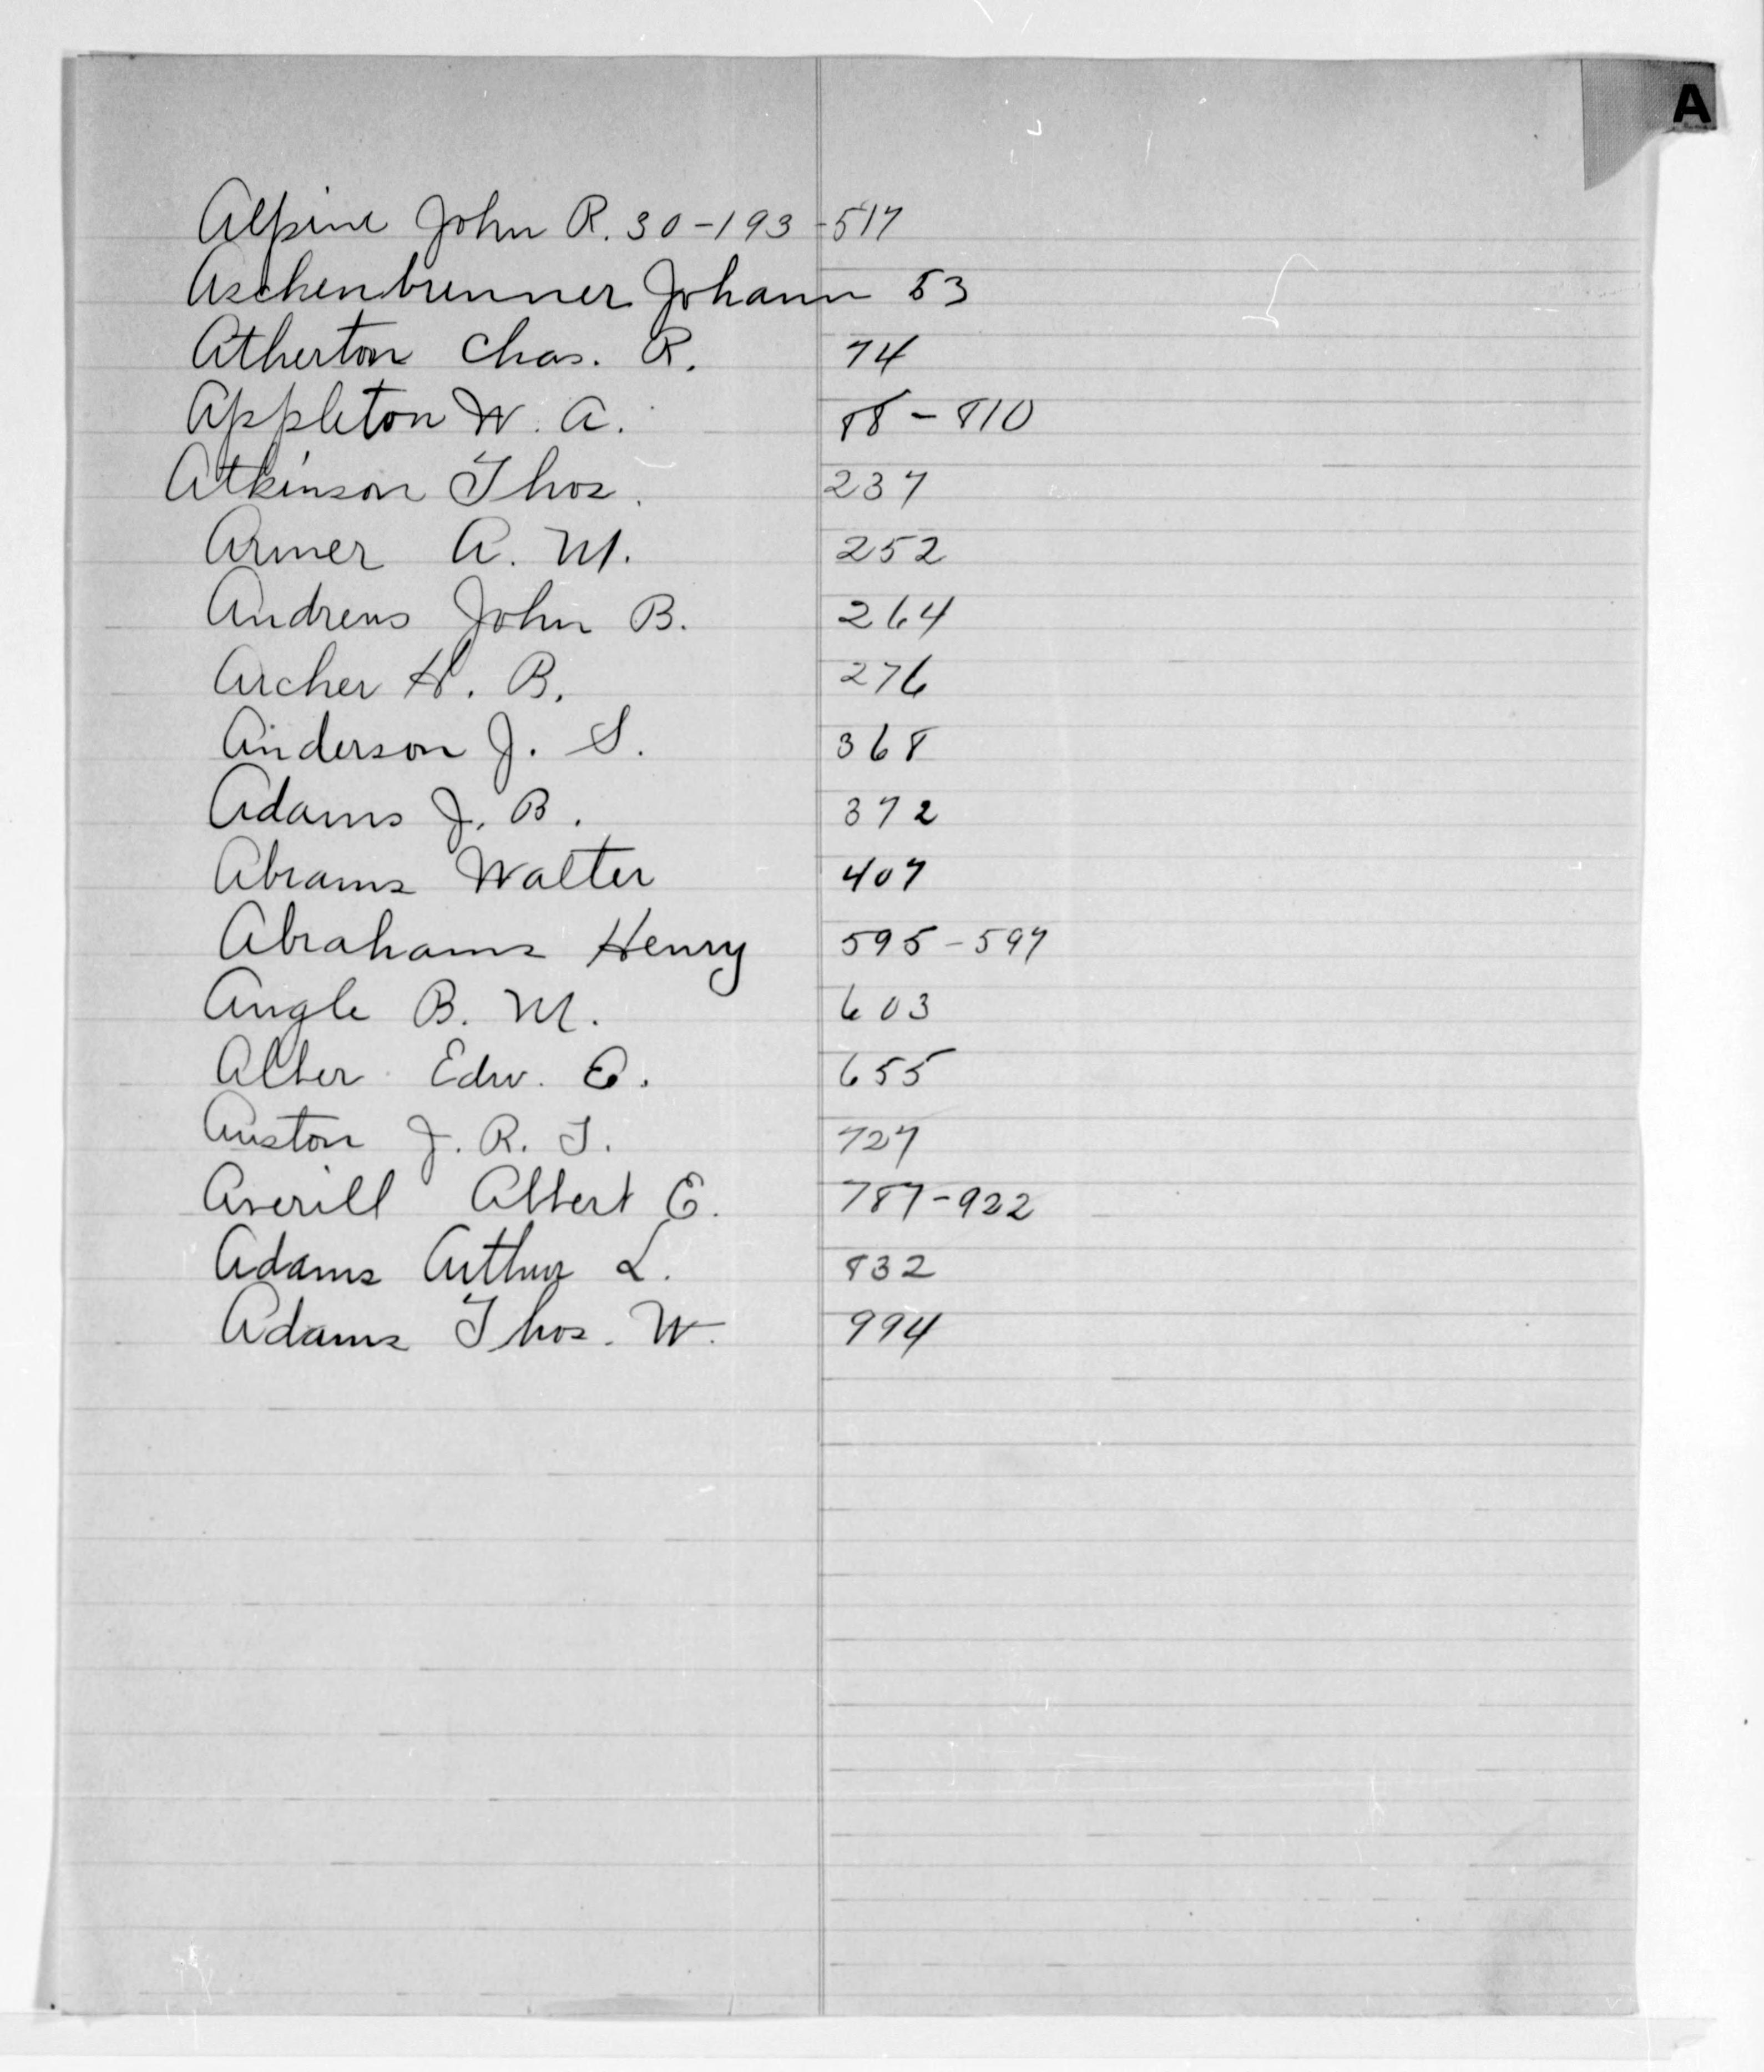 A
Alpine John R. 30-193-517
Aschenbrenner Johann 53
Atherton Chas. R. 74
Appleton W. A. 88-810
Atkinson Thos. 237
Armer A. M. 252
Andrews John B. 264
Archer H. B. 276
Anderson J. S. 368
Adams J. B. 372
Abrams Walter 407
Abrahams Henry 595-597
Angle B. M. 603
Alber Edw. E. 655
Auston J. R. T. 727
Averill Albert E. 787-922
Adams Arthur L. 832
Adams Thos. W. 994